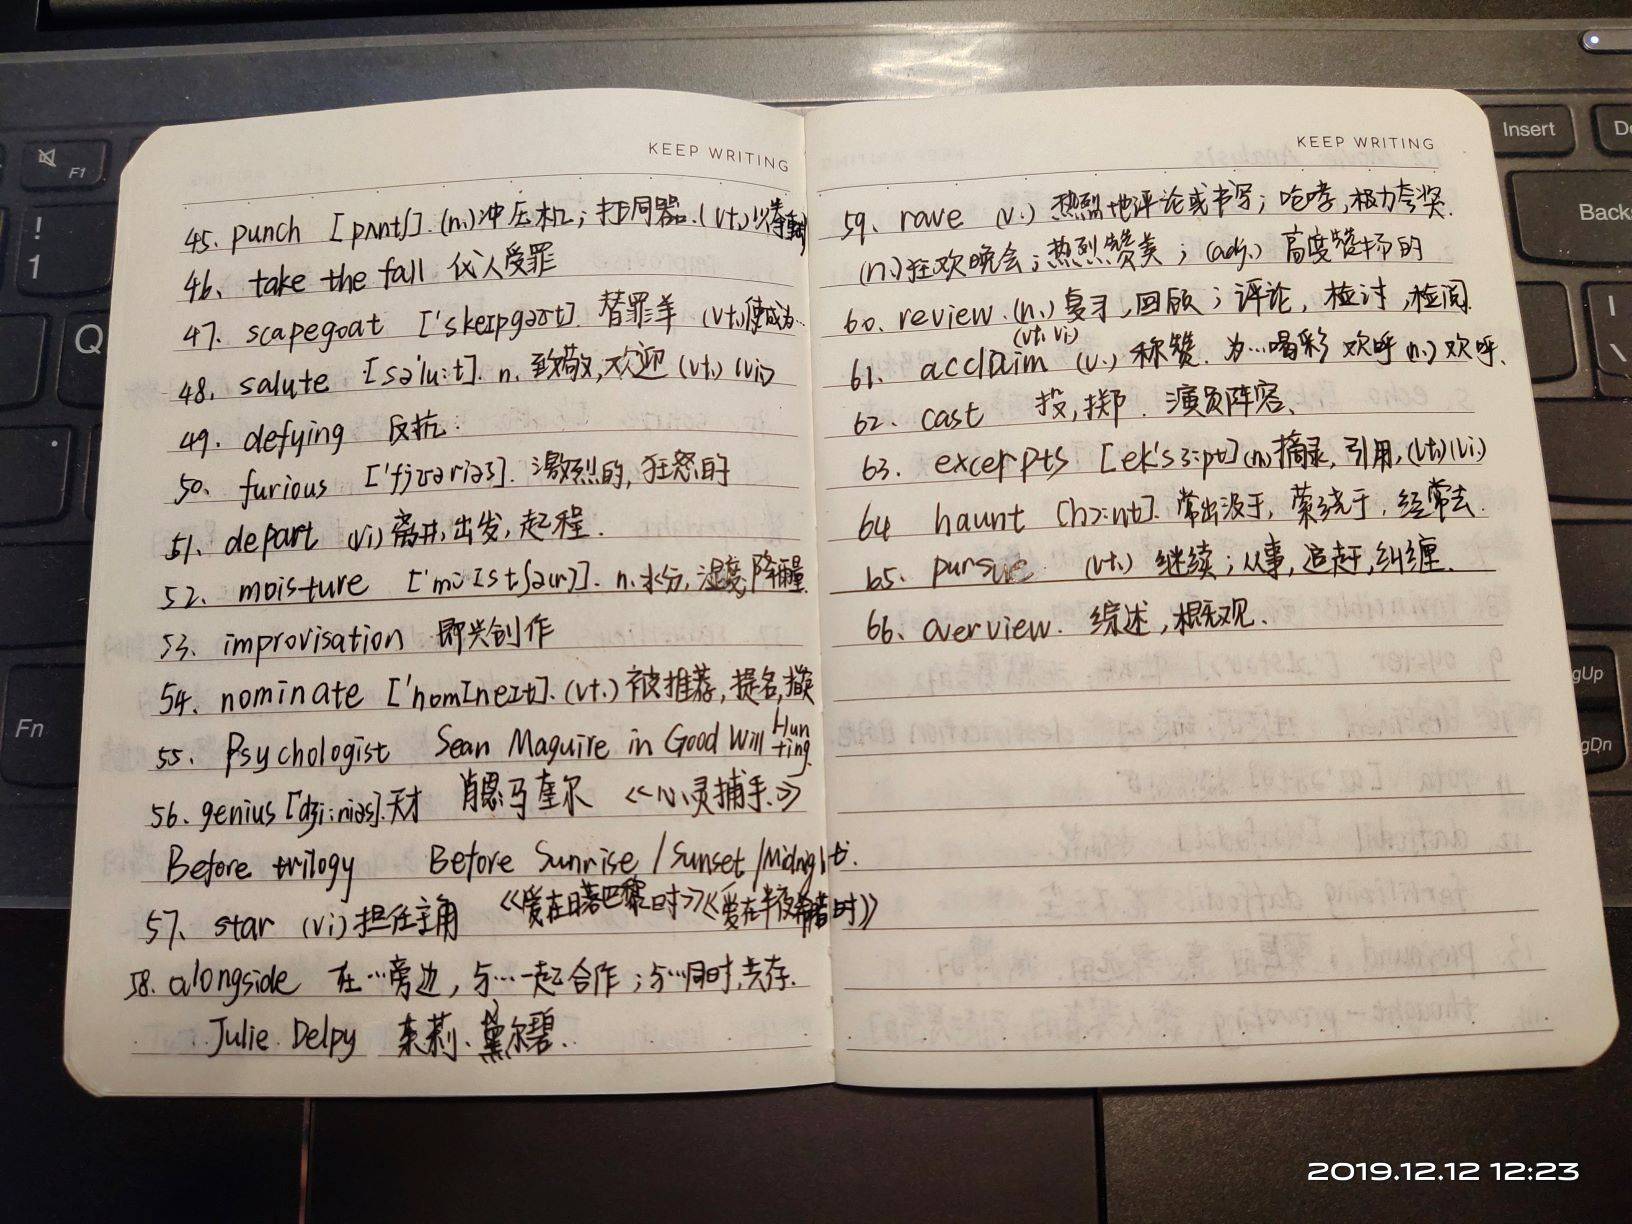 KEEP WRITING
45. punch [pʌntʃ]. (n.)冲压机；打同器. (vt.)以拳重
46、take the fall 代人受罪
47. scapegoat ['skeɪpgəʊt]. 替罪羊 (vt.)使成为…
48、salute [sə'lu:t]. n. 致敬,欢迎 (vt.) (vi)
49、defying 反抗.
50、furious ['fjʊəriəs]. 激烈的, 狂怒的
51、depart (vi) 离开,出发,起程.
52、moisture n.水份,湿度,降雨量
53、improvisation 即兴创作
54、nominate ['nomIneIt]. (vt.) 被推荐,提名,
55、Psychologist Sean Maguire in Good Will Hunting.
56、genius [dʒi:niəs].天才 肖恩·马奎尔 <<心灵捕手>>
Before trilogy Before Sunrise / Sunset / Midnight.
《爱在日落巴黎时》《爱在午夜希腊时》
57、star (vi) 担任主角
58. alongside 在…旁边, 与…一起合作；与…同时,共存.
Julie Delpy 朱莉·黛尔碧.
KEEP WRITING
59、rave (v.) 热烈地评论或书写；咆哮,极力夸奖.
(n.)狂欢晚会；热烈赞美；(adj.) 高度赞扬的
60、review. (n.) 复习,回顾；评论, 检讨,检阅.
(vt. vi)
61. acclaim (v.) 称赞. 为…喝彩 欢呼 (n.) 欢呼.
62、cast 投,掷. 演员阵容、
63. excerpts [ek'sɜ:pt] (n)摘录,引用,(vt.)(vi.)
64 haunt [hɔ:nt]. 常出没于, 萦绕于, 经常去.
65. pursue (vt.) 继续；从事,追赶,纠缠.
66、overview. 综述,概观.
Insert
Q
Fn
F1
!
1
2019.12.12 12:23